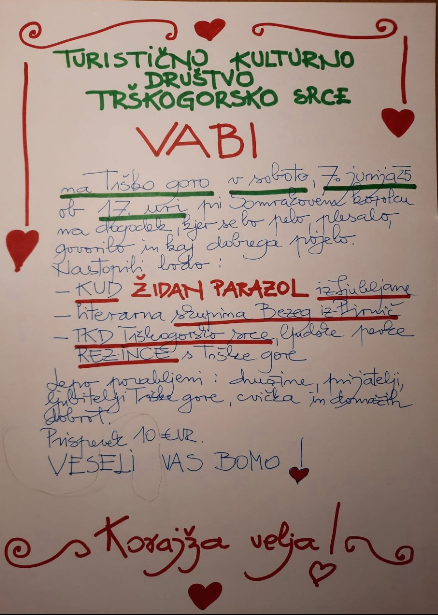 TURISTIČNO KULTURNO
DRUŠTVO
TRŠKOGORSKO SRCE
VABI
na Trško goro v soboto, 7. junija 25
ob 17. uri pri Somrakovem kozolcu
na dogodek, kjer se bo pelo, plesalo,
govorilo in kaj dobrega pojelo.
Nastopili bodo:
- KUD ŽIDAN PARAZOL iz Ljubljane
- literarna skupina Bezeg iz
- TKD Trškogorsko srce, ljudske pevke
REZINCE s Trške gore
Lepo povabljeni: družine, prijatelji,
ljubitelji Trške gore, cvička in domačih
dobrot.
Prispevek 10 EUR.
VESELI VAS BOMO!
Korajža velja!